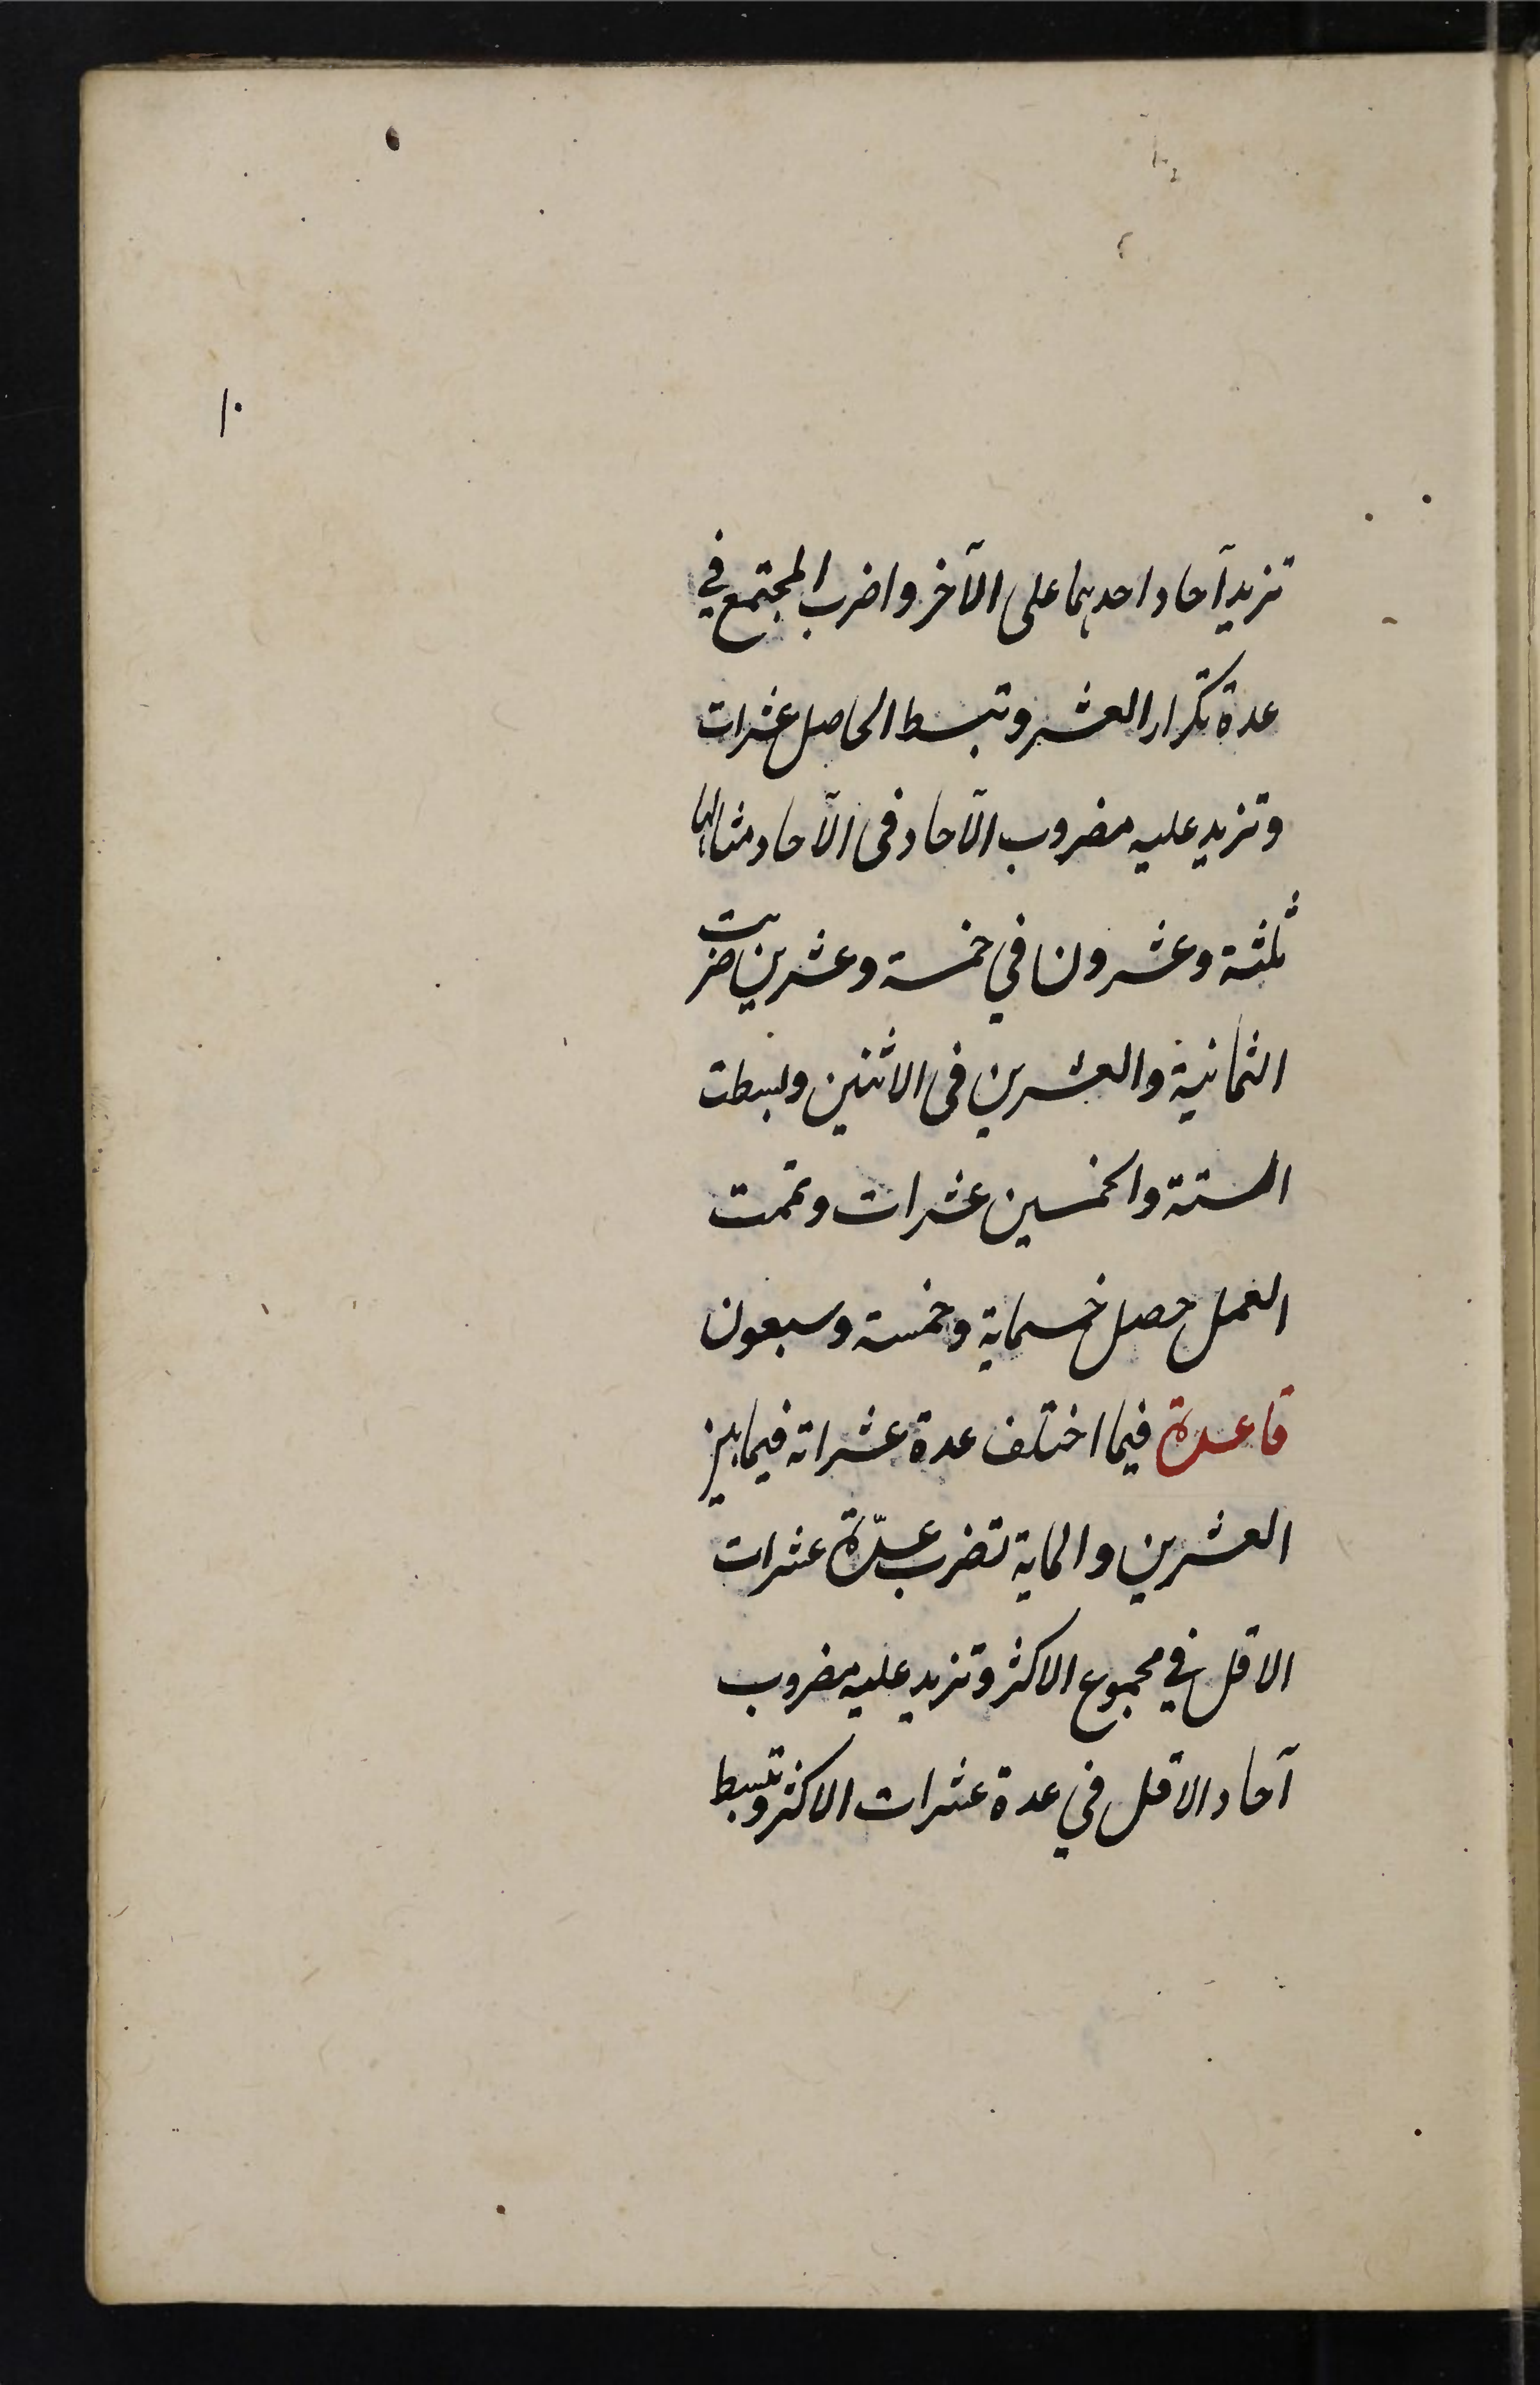 ١٠
تزيد آحاد احدهما على الآخر واضرب المجتمع في
عدة تكرار العشر وتبسط الحاصل عشرات
وتزيد عليه مضروب الآحاد فى الآحاد مثالها
ثلثة وعشرون في خمسة وعشرين ضربت
الثمانية والعشرين فى الاثنين وبسطت
الستة والخمسين عشرات وتممت
العمل حصل خمسماية وخمسة وسبعون
قاعدة فيما اختلف عدة عشراته فيما بين
العشرين والماية تضرب عدّة عشرات
الاقل في مجموع الاكثر وتزيد عليه مضروب
آحاد الاقل في عدة عشرات الاكثر وتبسط